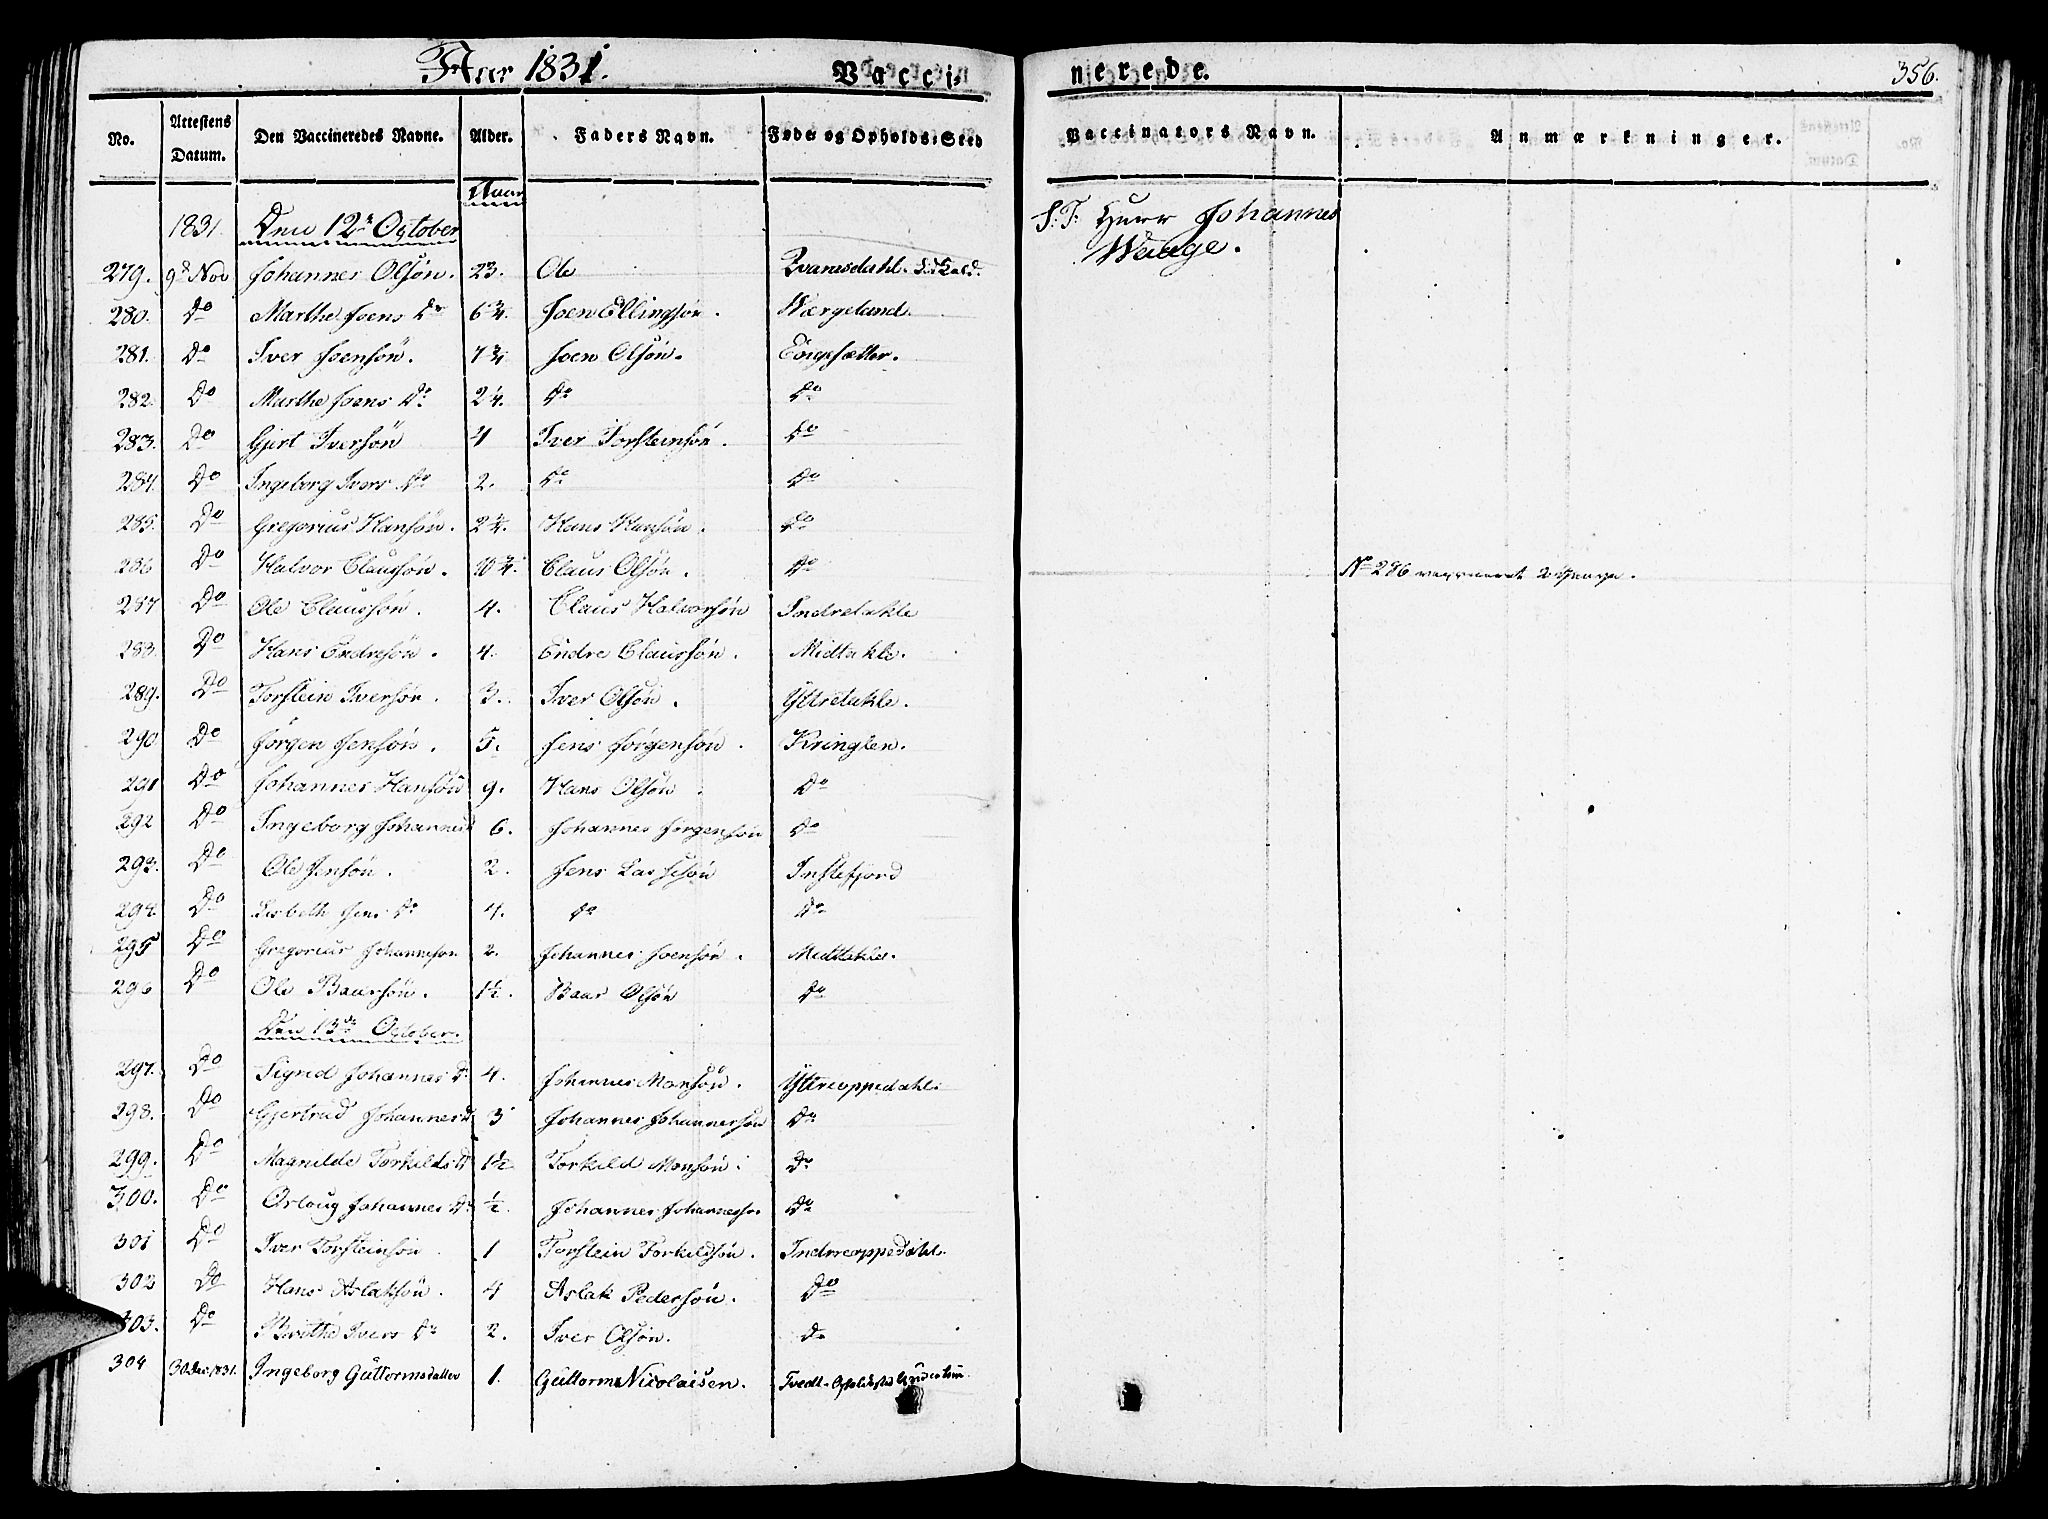 Aar 1831. Vacci- nerede. 356.
No. Attestens Datum. Den Vaccineredes Navne. Alder. Faders Navn. Føde og Opholds-Sted Vaccinators Navn. Anmærkninger.
Aar
1831 Den 12te October S. T. Herr Johannes
Wenge.
279. 9d Nov Johannes Olsøn. 23. Ole
280. Do Marthe Joens Dr 6 3/4. Joen Ellingsøn. Værgeland.
281. Do Iver Joensøn. 7 3/4 Joen Olsøn. Engesætter.
282. Do Marthe Joens Dr. 2 1/4. Do Do
283. Do Gjert Iversøn 4 Iver Torsteinsøn. Do
284. Do Ingeborg Ivers Dr 2. Do Do
285. Do Gregorius Hansøn. 2 3/4. Hans Hansøn. Do
286 Do Halvor Claussøn. 10 3/4. Claus Olsøn. Do No 286 vaccineret 2 Gange.
287 Do Ole Claussøn. 4. Claus Halvorsøn Indretakle
288. Do Hans Endresøn. 4. Endre Claussøn. Midtakle.
289. Do Torstein Iversøn. 3. Iver Olsøn. Yttretakle.
290 Do Jørgen Jensøn. 5. Jens Jørgensøn. Kringlen.
291 Do Johannes Hansøn 9. Hans Olsøn Do
292 Do Ingeborg Johannesd 6. Johannes Jørgensøn Do
293. Do Ole Jensøn. 2. Jens Lassesøn Instefjord
294. Do Lisbeth Jens Dr 4. Do Do
295 Do Gregorius Johannesøn 2. Johannes Joensøn. Midttakle.
296 Do Ole Baarsøn. 1 1/2. Baar Olsøn Do
Den 13de October.
297. Do Sigrid Johannes D. 4. Johannes Monsøn. Yttreoppedahl.
298. Do Gjertrud Johannesd 3 Johannes Johannessøn Do
299. Do Magnilde Torkilds D 1 1/2. Torkild Monsøn. Do
300. Do Osloug Johannes Dr 1/2. Johannes Johannessøn Do
301 Do Iver Torsteinsøn 1 Torstein Torkildsøn. Indreoppedahl.
302 Do Hans Aslaksøn. 4 Aslak Pedersøn. Do
303. Do Brithe Ivers Dr 2. Iver Olsøn. Do
304 30 Dec. 1831. Ingeborg Guttormsdatter 1. Guttorm Nicolaisen. Tvedt.